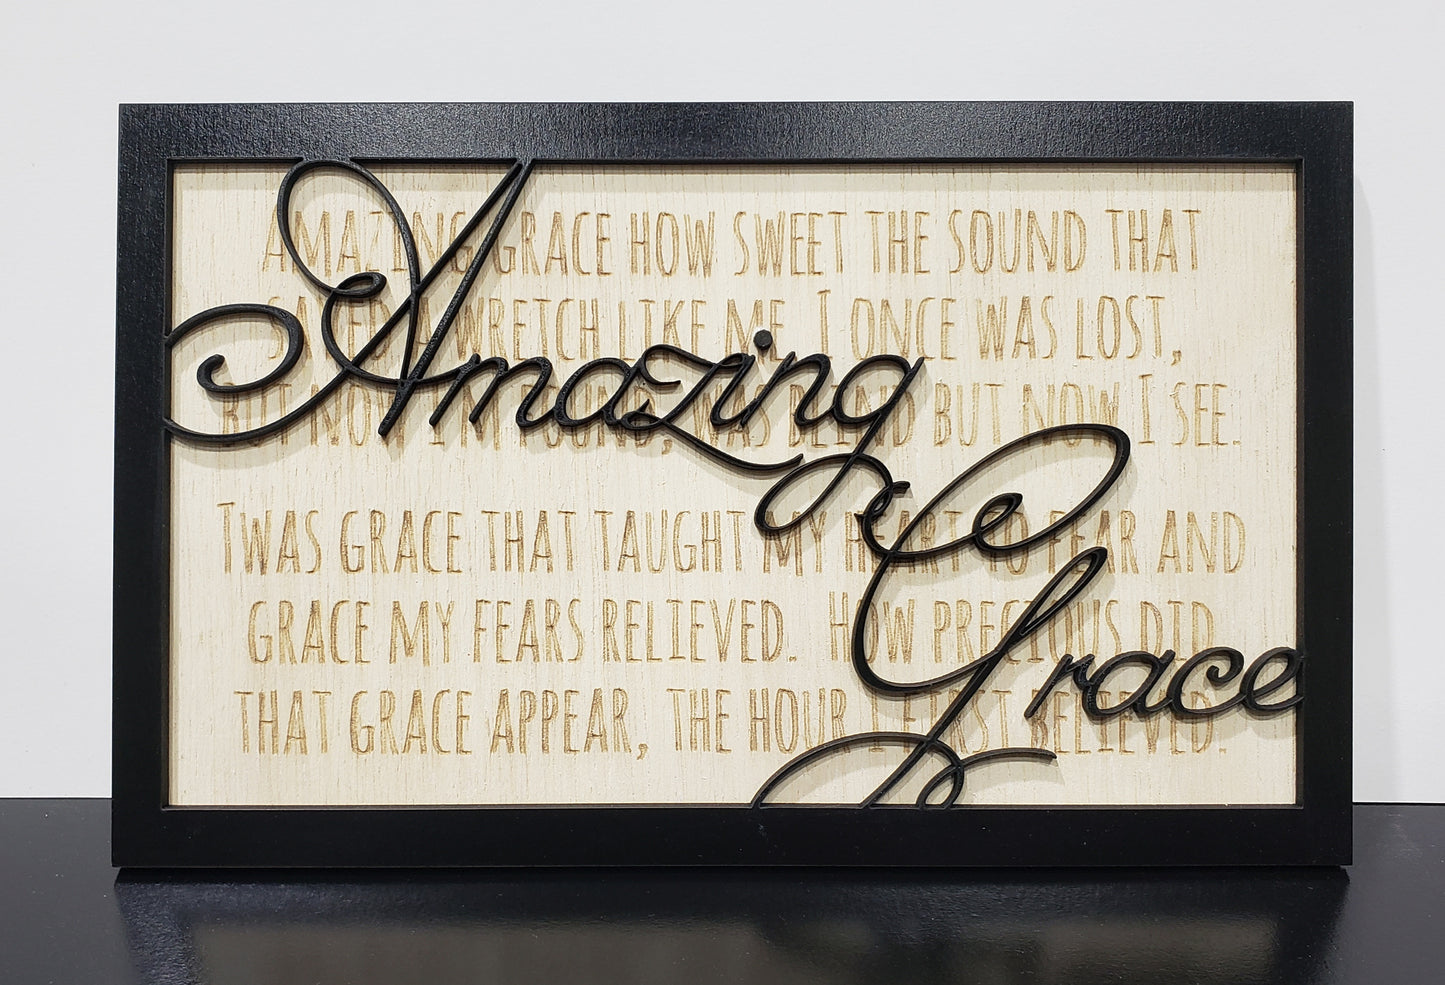 Amazing
Grace
AMAZING GRACE HOW SWEET THE SOUND THAT
SAVED A WRETCH LIKE ME. I ONCE WAS LOST,
BUT NOW I'M FOUND, WAS BLIND BUT NOW I SEE.
TWAS GRACE THAT TAUGHT MY HEART TO FEAR AND
GRACE MY FEARS RELIEVED. HOW PRECIOUS DID
THAT GRACE APPEAR, THE HOUR I FIRST BELIEVED.